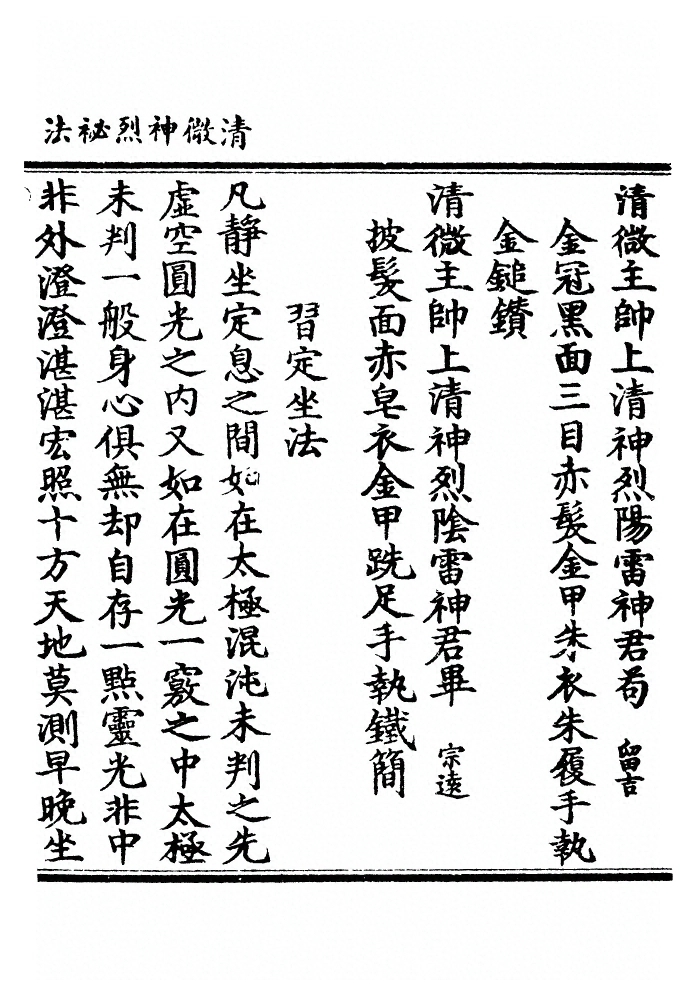 清微神烈祕法
清微主帥上清神烈陽雷神君苟 留吉
金冠黑面三目赤髮金甲朱衣朱履手執
金鎚鑽
清微主帥上清神烈陰雷神君畢 宗遠
披髮面赤皂衣金甲跣足手執鐵簡
習定坐法
凡靜坐定息之間如在太極混沌未判之先
虛空圓光之內又如在圓光一竅之中太極
未判一般身心俱無却自存一點靈光非中
非外澄澄湛湛宏照十方天地莫測早晚坐